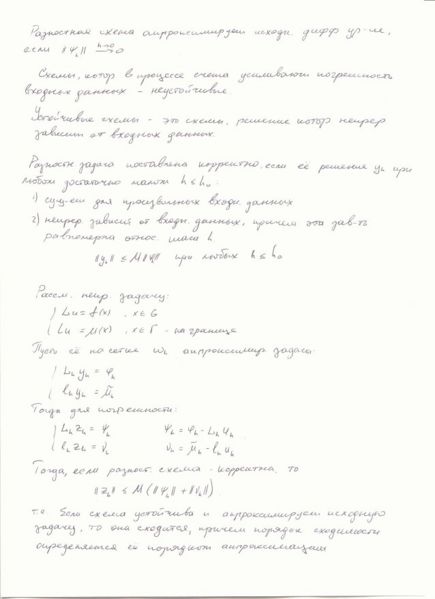 Разностная схема аппроксимирует исходн. дифф ур-ие,
если ||ψₕ|| →(h→0) 0
Схемы, котор в процессе счета усиливают погрешность
входных данных - неустойчивые
Устойчивые схемы - это схемы, решение котор непрер
зависит от входных данных.
Разностн задача поставлена корректно, если её решение yₕ при
любом достаточно малом h ≤ h₀:
1) сущ-ет для произвольных входн. данных
2) непрер зависит от входн. данных, причем эта зав-ть
равномерна относ. шага h
||yₕ|| ≤ M||φ|| при любых h ≤ h₀
Рассм. непр. задачу:
Lu = f(x) , x ∈ G
lu = μ(x) , x ∈ Γ - на границе
Пусть её на сетке ωₕ аппроксимир задача:
Lₕ yₕ = φₕ
lₕ yₕ = μ̄ₕ
Тогда для погрешности:
Lₕ zₕ = ψₕ ψₕ = φₕ - Lₕ uₕ
lₕ zₕ = νₕ νₕ = μ̄ₕ - lₕ uₕ
Тогда, если разност. схема - корректна, то
||zₕ|| ≤ M (||ψₕ|| + ||νₕ||)
т.е Если схема устойчива и аппроксимирует исходную
задачу, то она сходится, причем порядок сходимости
определяется её порядком аппроксимации